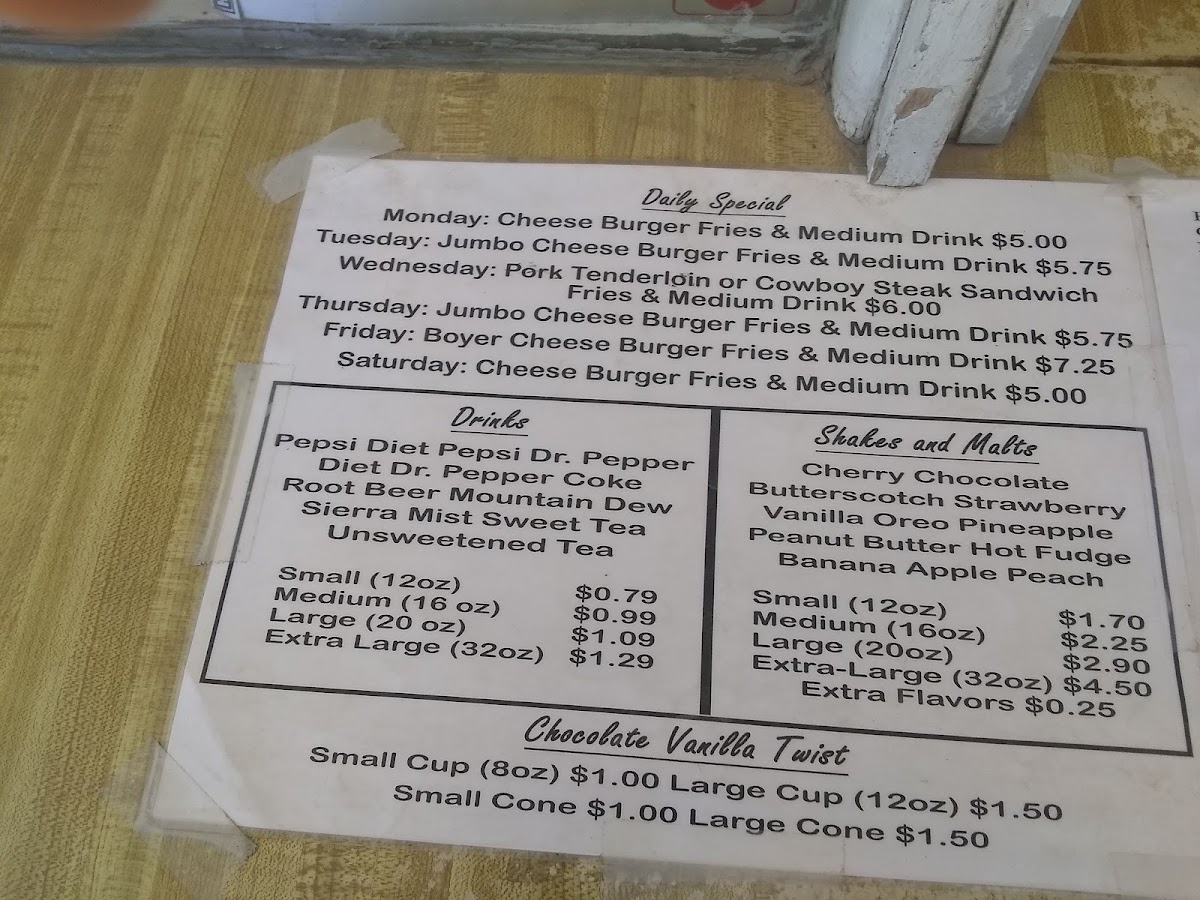 Daily Special
Monday: Cheese Burger Fries & Medium Drink $5.00
Tuesday: Jumbo Cheese Burger Fries & Medium Drink $5.75
Wednesday: Pork Tenderloin or Cowboy Steak Sandwich
Fries & Medium Drink $6.00
Thursday: Jumbo Cheese Burger Fries & Medium Drink $5.75
Friday: Boyer Cheese Burger Fries & Medium Drink $7.25
Saturday: Cheese Burger Fries & Medium Drink $5.00
Drinks
Pepsi Diet Pepsi Dr. Pepper
Diet Dr. Pepper Coke
Root Beer Mountain Dew
Sierra Mist Sweet Tea
Unsweetened Tea
Small (12oz) $0.79
Medium (16 oz) $0.99
Large (20 oz) $1.09
Extra Large (32oz) $1.29
Shakes and Malts
Cherry Chocolate
Butterscotch Strawberry
Vanilla Oreo Pineapple
Peanut Butter Hot Fudge
Banana Apple Peach
Small (12oz) $1.70
Medium (16oz) $2.25
Large (20oz) $2.90
Extra-Large (32oz) $4.50
Extra Flavors $0.25
Chocolate Vanilla Twist
Small Cup (8oz) $1.00 Large Cup (12oz) $1.50
Small Cone $1.00 Large Cone $1.50